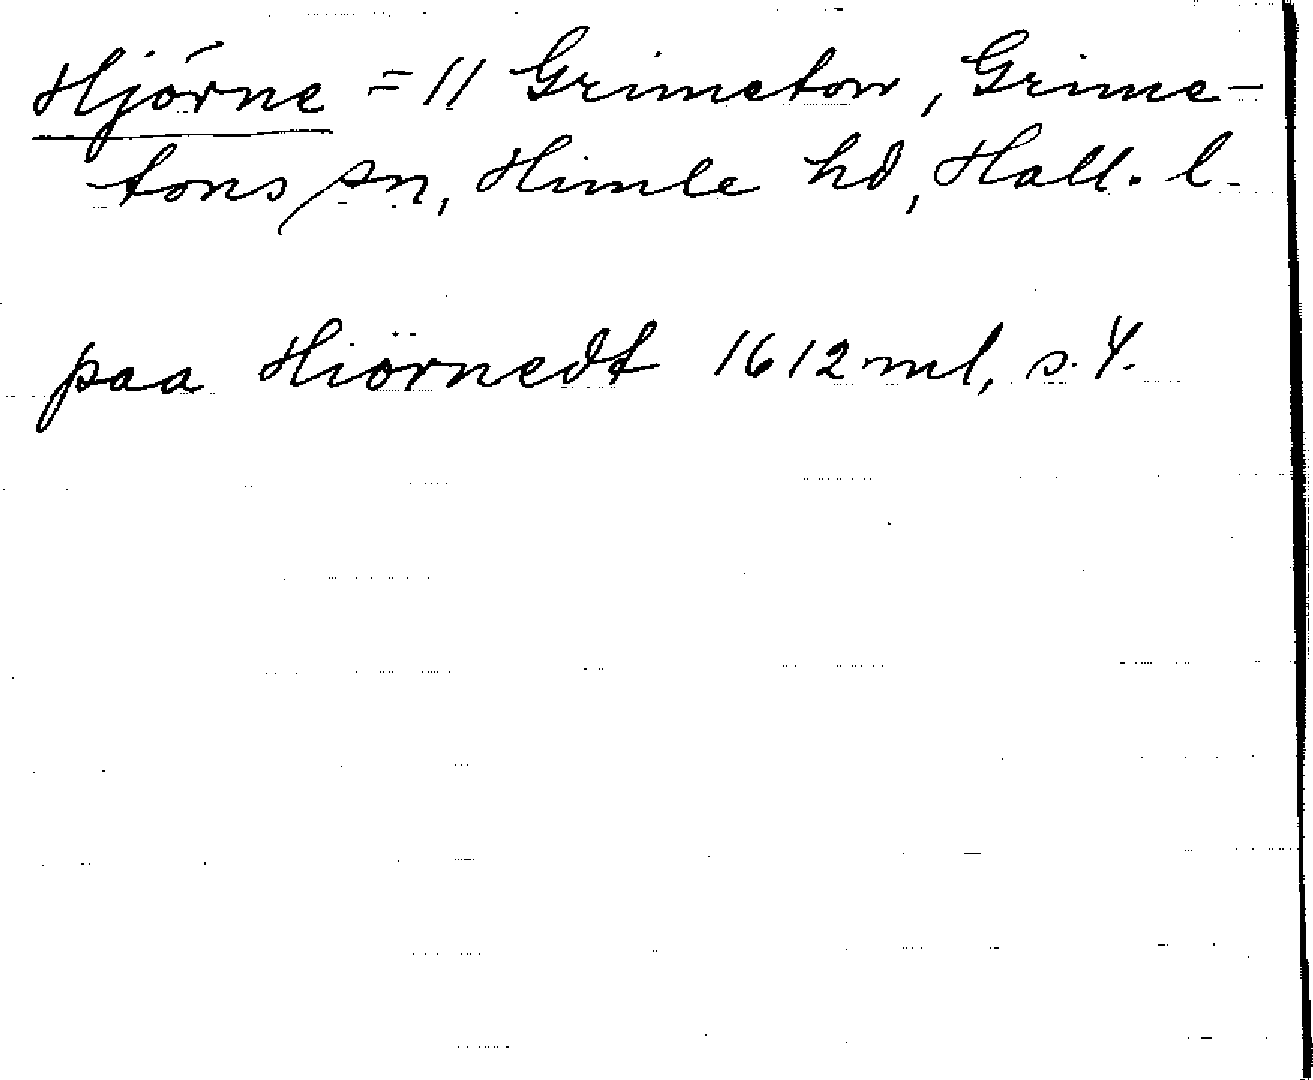 Hjörne = 11 Grimeton, Grime-
tons sn, Himle hd, Hall. l.
paa Hiörnedt 1612 ml, s. 4.